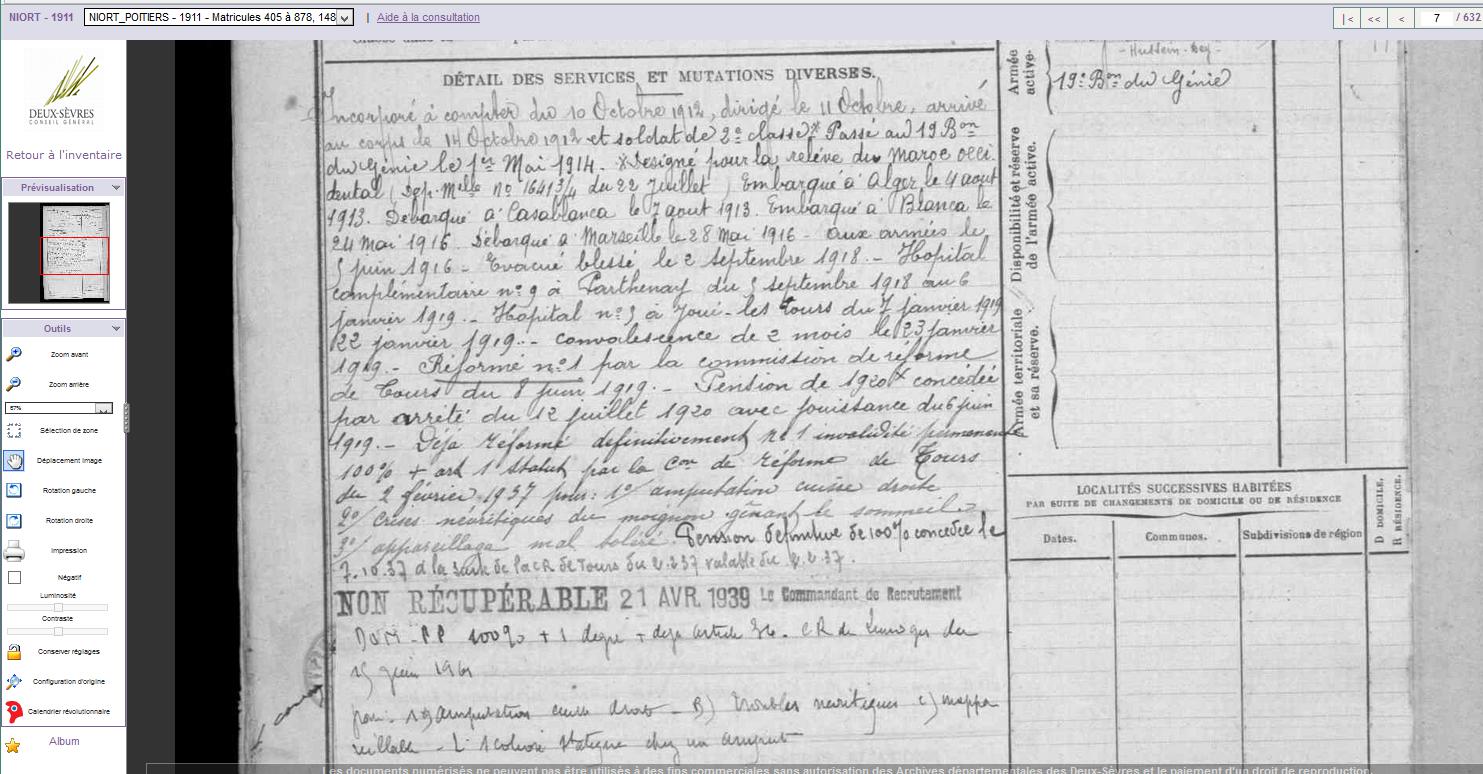 NIORT - 1911
NIORT_POITIERS - 1911 - Matricules 405 à 878, 148
| Aide à la consultation
|< << < 7 / 632
DEUX-SÈVRES
CONSEIL GÉNÉRAL
Retour à l'inventaire
Prévisualisation
Outils
Zoom avant
Zoom arrière
67%
Sélection de zone
Déplacement image
Rotation gauche
Rotation droite
Impression
Négatif
Luminosité
Contraste
Conserver réglages
Configuration d'origine
Calendrier révolutionnaire
Album
DÉTAIL DES SERVICES ET MUTATIONS DIVERSES.
Incorporé à compter du 10 Octobre 1912, dirigé le 11 Octobre, arrivé
au corps le 14 Octobre 1912 et soldat de 2e classe * Passé au 19 Bon
du Génie le 1er Mai 1914. * Désigné pour la relève du Maroc occi.
dental (Dép. Melle no 16413/4 du 22 Juillet) Embarqué à Alger le 4 aout
1913. Débarqué à Casablanca le 7 aout 1913. Embarqué à Blanca le
24 Mai 1916. Débarqué à Marseille le 28 Mai 1916 - aux armées le
5 juin 1916 - Evacué blessé le 2 septembre 1918. - Hopital
complémentaire no 9 à Parthenay du 5 septembre 1918 au 6
janvier 1919. - Hopital no 3 à Joué-les Tours du 7 janvier 1919
22 janvier 1919. - convalescence de 2 mois le 23 janvier
1919. - Réformé no 1 par la commission de réforme
de Tours du 8 juin 1919. - Pension de 1920 x concédée
par arrêté du 12 juillet 1920 avec jouissance du 6 juin
1919. - Déjà réformé définitivement no 1 invalidité permanente
100% + art 1 Statut, par la Con de réforme de Tours
du 2 février 1937 pour: 1o/ amputation cuisse droite
2o/ crises névritiques du moignon gênant le sommeil.
3o/ appareillage mal toléré Pension définitive de 100% concédée le
7.10.37 à la suite de la CR de Tours du 2.2.37 valable du 2.2.37.
NON RÉCUPÉRABLE 21 AVR 1939 Le Commandant de Recrutement
PP 100% + 1 degré + déjà article 36. CR de Limoges du
15 juin 1961
pour: amputation cuisse droite - B) troubles névritiques C) inappa
reillable - scoliose statique chez un amputé
Armée
active.
- Hussein-Dey -
19e Bon du Génie
Disponibilité et réserve
de l'armée active.
Armée territoriale
et sa réserve.
LOCALITÉS SUCCESSIVES HABITÉES
PAR SUITE DE CHANGEMENTS DE DOMICILE OU DE RÉSIDENCE
Dates.
Communes.
Subdivisions de région
D DOMICILE,
R RÉSIDENCE.
Les documents numérisés ne peuvent pas être utilisés à des fins commerciales sans autorisation des Archives départementales des Deux-Sèvres et le paiement d'un droit de reproduction